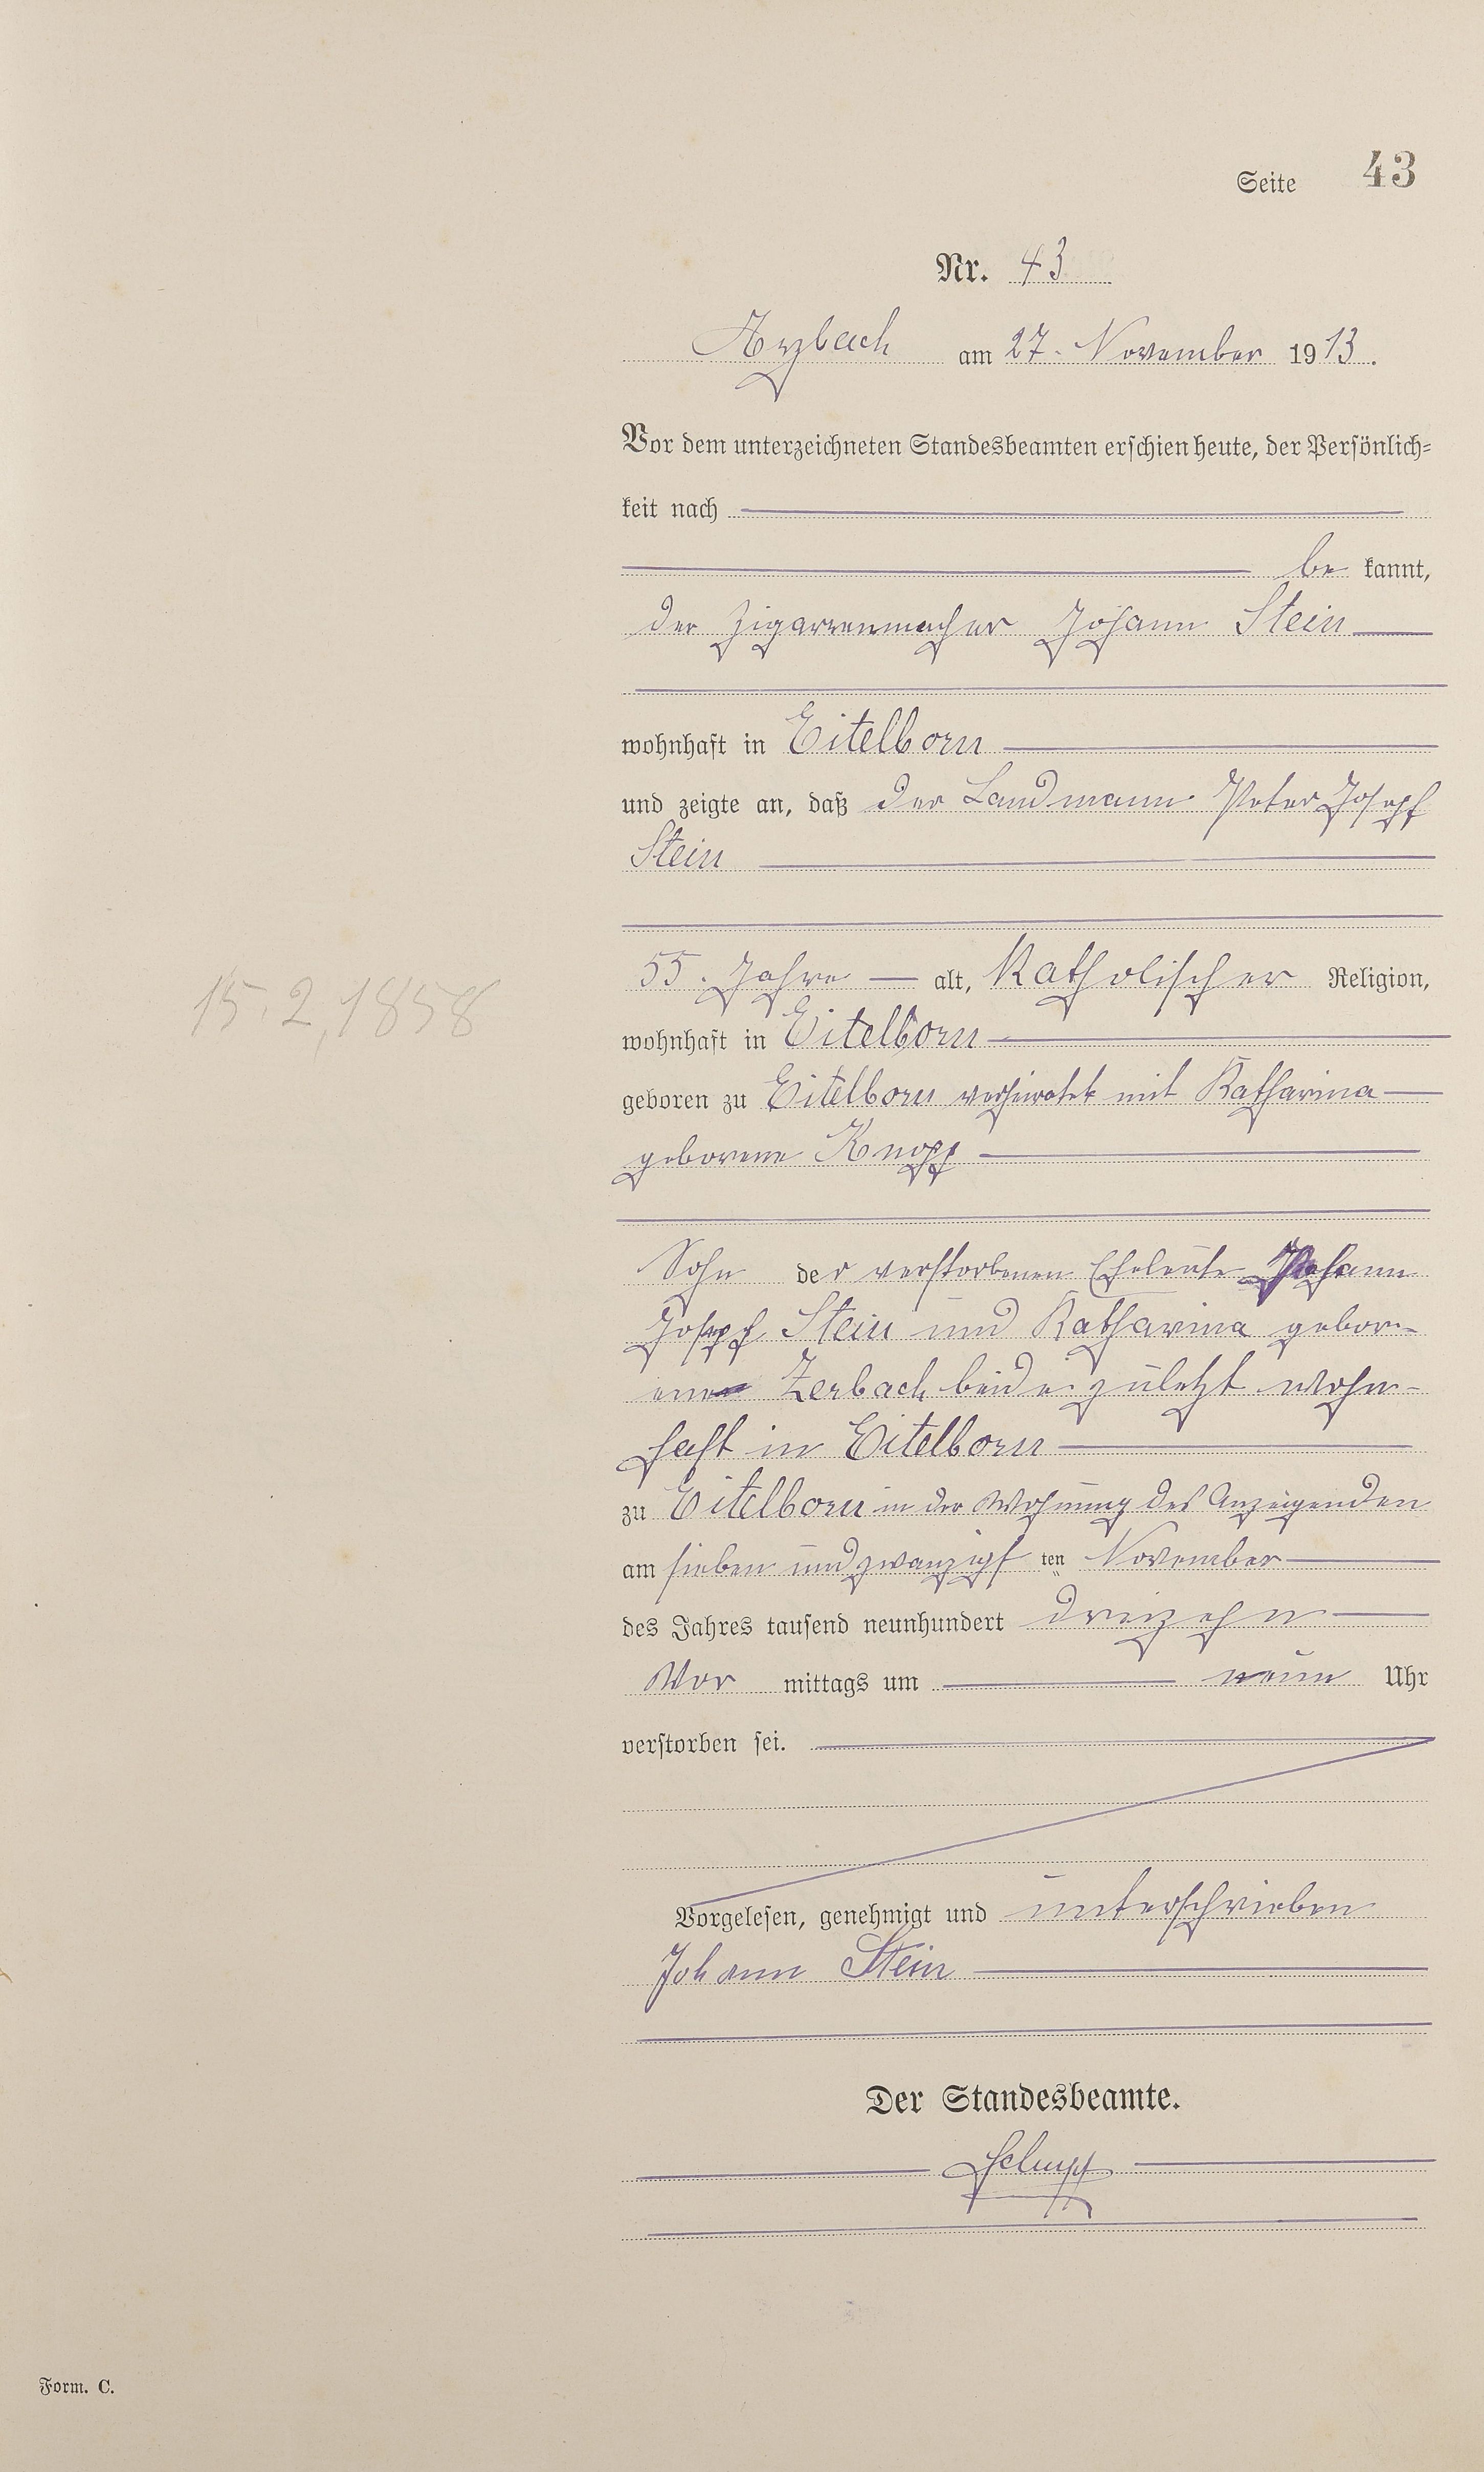 Seite 43
Nr. 43
Arzbach am 27. November 1913.
Vor dem unterzeichneten Standesbeamten erschien heute, der Persönlich=
keit nach
be kannt,
der Zigarrenmacher Johann Stein
wohnhaft in Eitelborn
und zeigte an, daß der Landmann Peter Joseph
Stein
55 Jahre alt, Katholischer Religion,
15.2.1858
wohnhaft in Eitelborn
geboren zu Eitelborn verheiratet mit Katharina
geborene Knopp
Sohn der verstorbenen Eheleute Johann
Joseph Stein und Katharina gebor-
ene Zerbach beide zuletzt wohn-
haft in Eitelborn
zu Eitelborn in der Wohnung des Anzeigenden
am sieben und zwanzigsten November
des Jahres tausend neunhundert dreizehn
Vor mittags um neun Uhr
verstorben sei.
Vorgelesen, genehmigt und unterschrieben
Johann Stein
Der Standesbeamte.
Form. C.